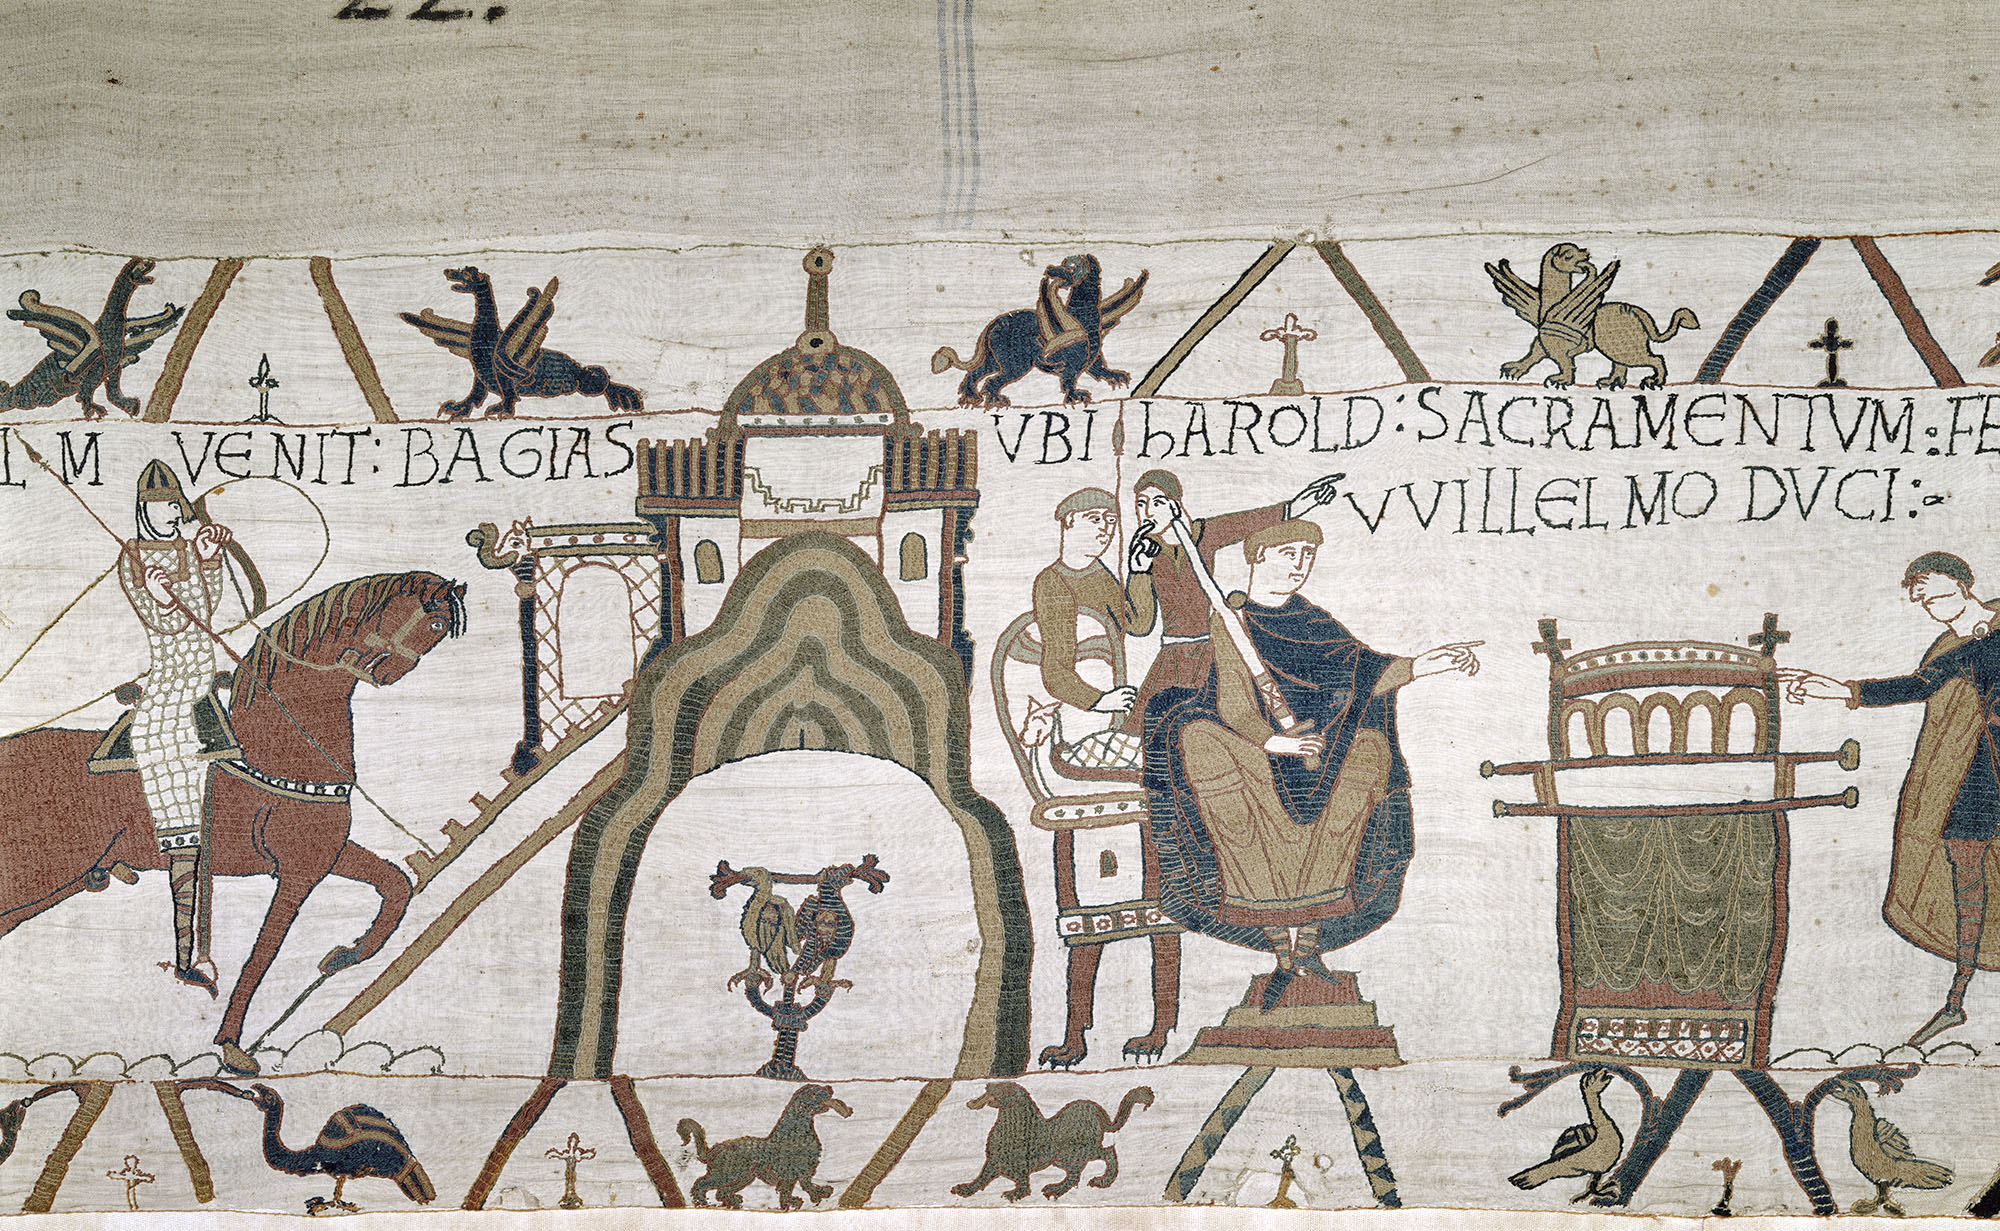 22.
LM VENIT: BAGIAS
VBI hAROLD: SACRAMENTVM: FE
VVILLELMO DVCI: